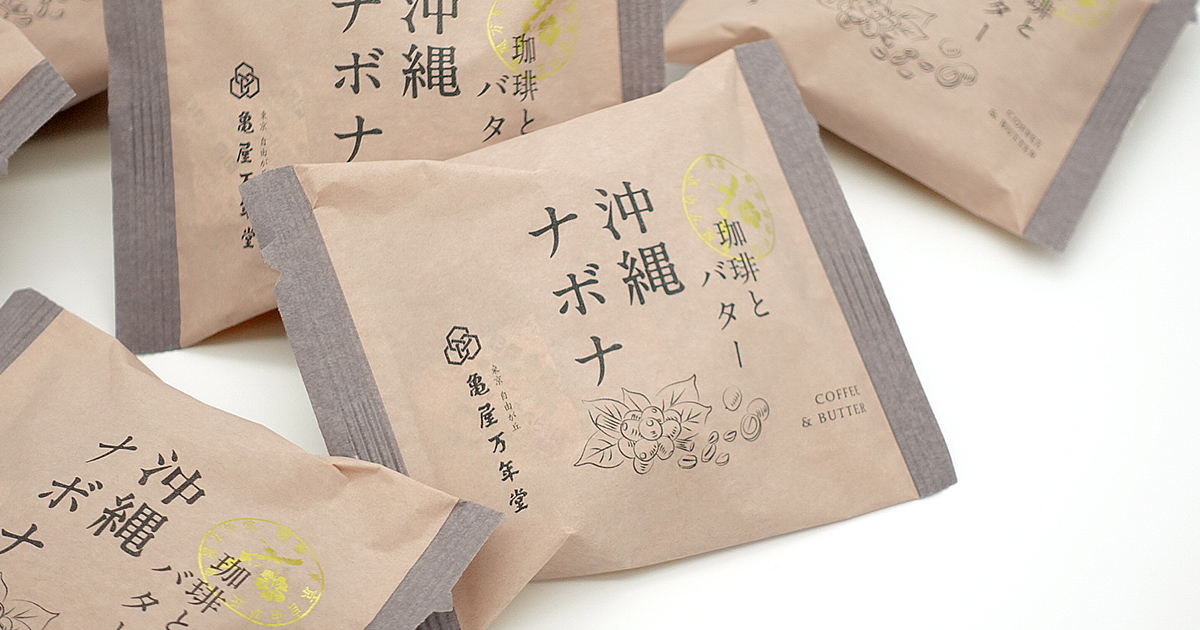 沖縄
ナボナ
珈琲と
バター
亀屋万年堂
東京 自由が丘
沖縄
ナボナ
珈琲と
バター
COFFEE
& BUTTER
東京 自由が丘
亀屋万年堂
沖縄
ナボナ
珈琲と
バター
琲と
ター
COFFEE
& BUTTER